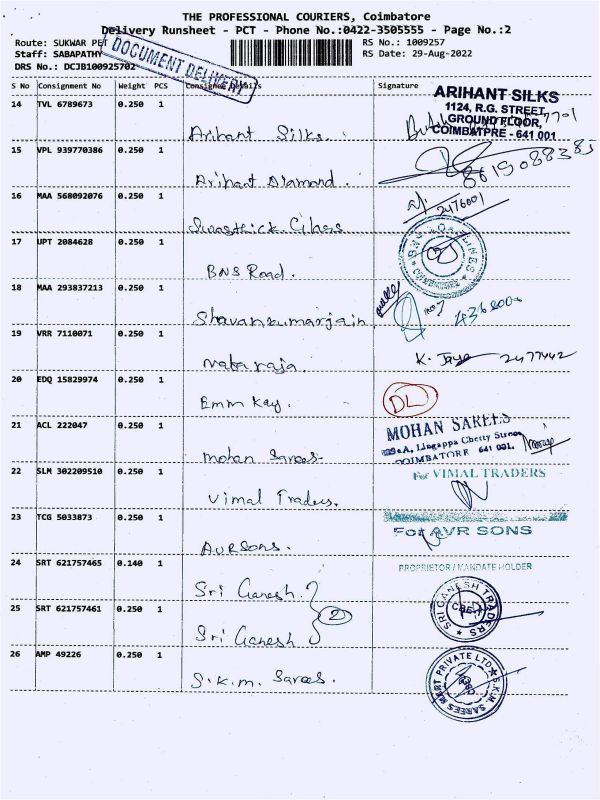 THE PROFESSIONAL COURIERS, Coimbatore
Delivery Runsheet - PCT - Phone No.:0422-3505555 - Page No.:2
Route: SUKWAR PET
RS No.: 1009257
Staff: SABAPATHY
RS Date: 29-Aug-2022
DRS No.: DCJB100925702
DOCUMENT DELIVERY
S No Consignment No Weight PCS Consignee Details Signature
14 TVL 6789673 0.250 1 Arihant Silks.
ARIHANT SILKS
1124, R.G. STREET,
GROUND FLOOR,
COIMBATPRE - 641 001
15 VPL 939770386 0.250 1 Arihant Diamond.
8619088385
16 MAA 568092076 0.250 1 Swasthick
2476001
17 UPT 2084628 0.250 1 BNS Road.
18 MAA 293837213 0.250 1 Shavankumarjain
436000
19 VRR 7110071 0.250 1 nataraja. K. Jaya 2477442
20 EDQ 15829974 0.250 1 Emm Kay. DL
21 ACL 222047 0.250 1 mohan Sarees
MOHAN SAREES
Lingappa Chetty Street
COIMBATORE 641 001.
22 SLM 302209510 0.250 1 Vimal Traders.
For VIMAL TRADERS
23 TCG 5033873 0.250 1 AVRSons.
For AVR SONS
PROPRIETOR / MANDATE HOLDER
24 SRT 621757465 0.140 1 Sri Ganesh.
25 SRT 621757461 0.250 1 Sri Ganesh
2
SRI GANESH TRADERS
CBE-1
26 AMP 49226 0.250 1 S.K.M. Sarees.
S.K.M. SAREES MART PRIVATE LTD